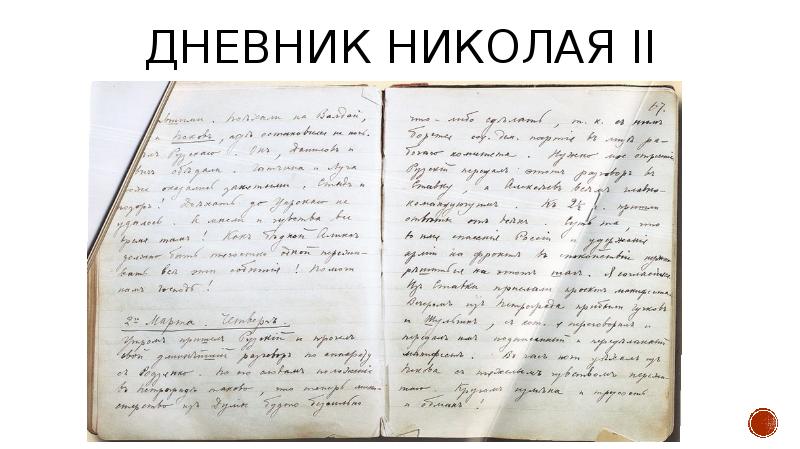 ДНЕВНИК НИКОЛАЯ II
Поѣхали на Валдай,
и Псковъ, гдѣ остановился на ночь.
Рузскаго. Онъ, Даниловъ и
обѣдали. Гатчина и Луга
тоже оказались занятыми. Стыдъ и
позоръ! Доѣхать до Царскаго не
удалось. А мысли и чувства все
время тамъ! Какъ бѣдной Аликсъ
должно быть тягостно одной пережи-
вать всѣ эти событія! Помоги
намъ Господь!
2го Марта. Четвергъ.
Утромъ пришелъ Рузскій и прочелъ
свой длиннѣйшій разговоръ по аппарату
съ Родзянко. По его словамъ положеніе
въ Петроградѣ таково, что теперь мини-
стерство изъ Думы будто безсильно
что-либо сдѣлать, т. к. съ нимъ
борется соц. дем. партія въ лицѣ ра-
бочаго комитета. Нужно мое отреченіе.
Рузскій передалъ этотъ разговоръ въ
Ставку, а Алексѣевъ всѣмъ главно-
командующимъ. Къ 2½ ч. пришли
отвѣты отъ всѣхъ. Суть та, что
во имя спасенія Россіи и удержанія
арміи на фронтѣ въ спокойствіи нужно
рѣшиться на этотъ шагъ. Я согласился.
Изъ Ставки прислали проектъ манифеста.
Вечеромъ изъ Петрограда прибыли Гучковъ
и Шульгинъ, съ кот. я переговорилъ и
передалъ имъ подписанный и передѣланный
манифестъ. Въ часъ ночи уѣхалъ изъ
Пскова съ тяжелымъ чувствомъ пережи-
таго. Кругомъ измѣна и трусость
и обманъ!